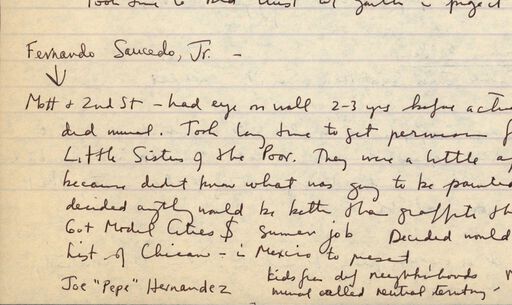 Took time to find trust of youth in project
Fernando Saucedo, Jr. -
Mott & 2nd St - had eye on wall 2-3 yrs before actu
did mural. Took long time to get permission f
Little Sisters of the Poor. They were a little a
because didn't know what was going to be painted
decided anything would be better than graffiti th
Got Model Cities $ summer job Decided would
hist of Chicano - in Mexico to present
Joe "Pepe" Hernandez kids from dif neighborhoods
mural called neutral territory -